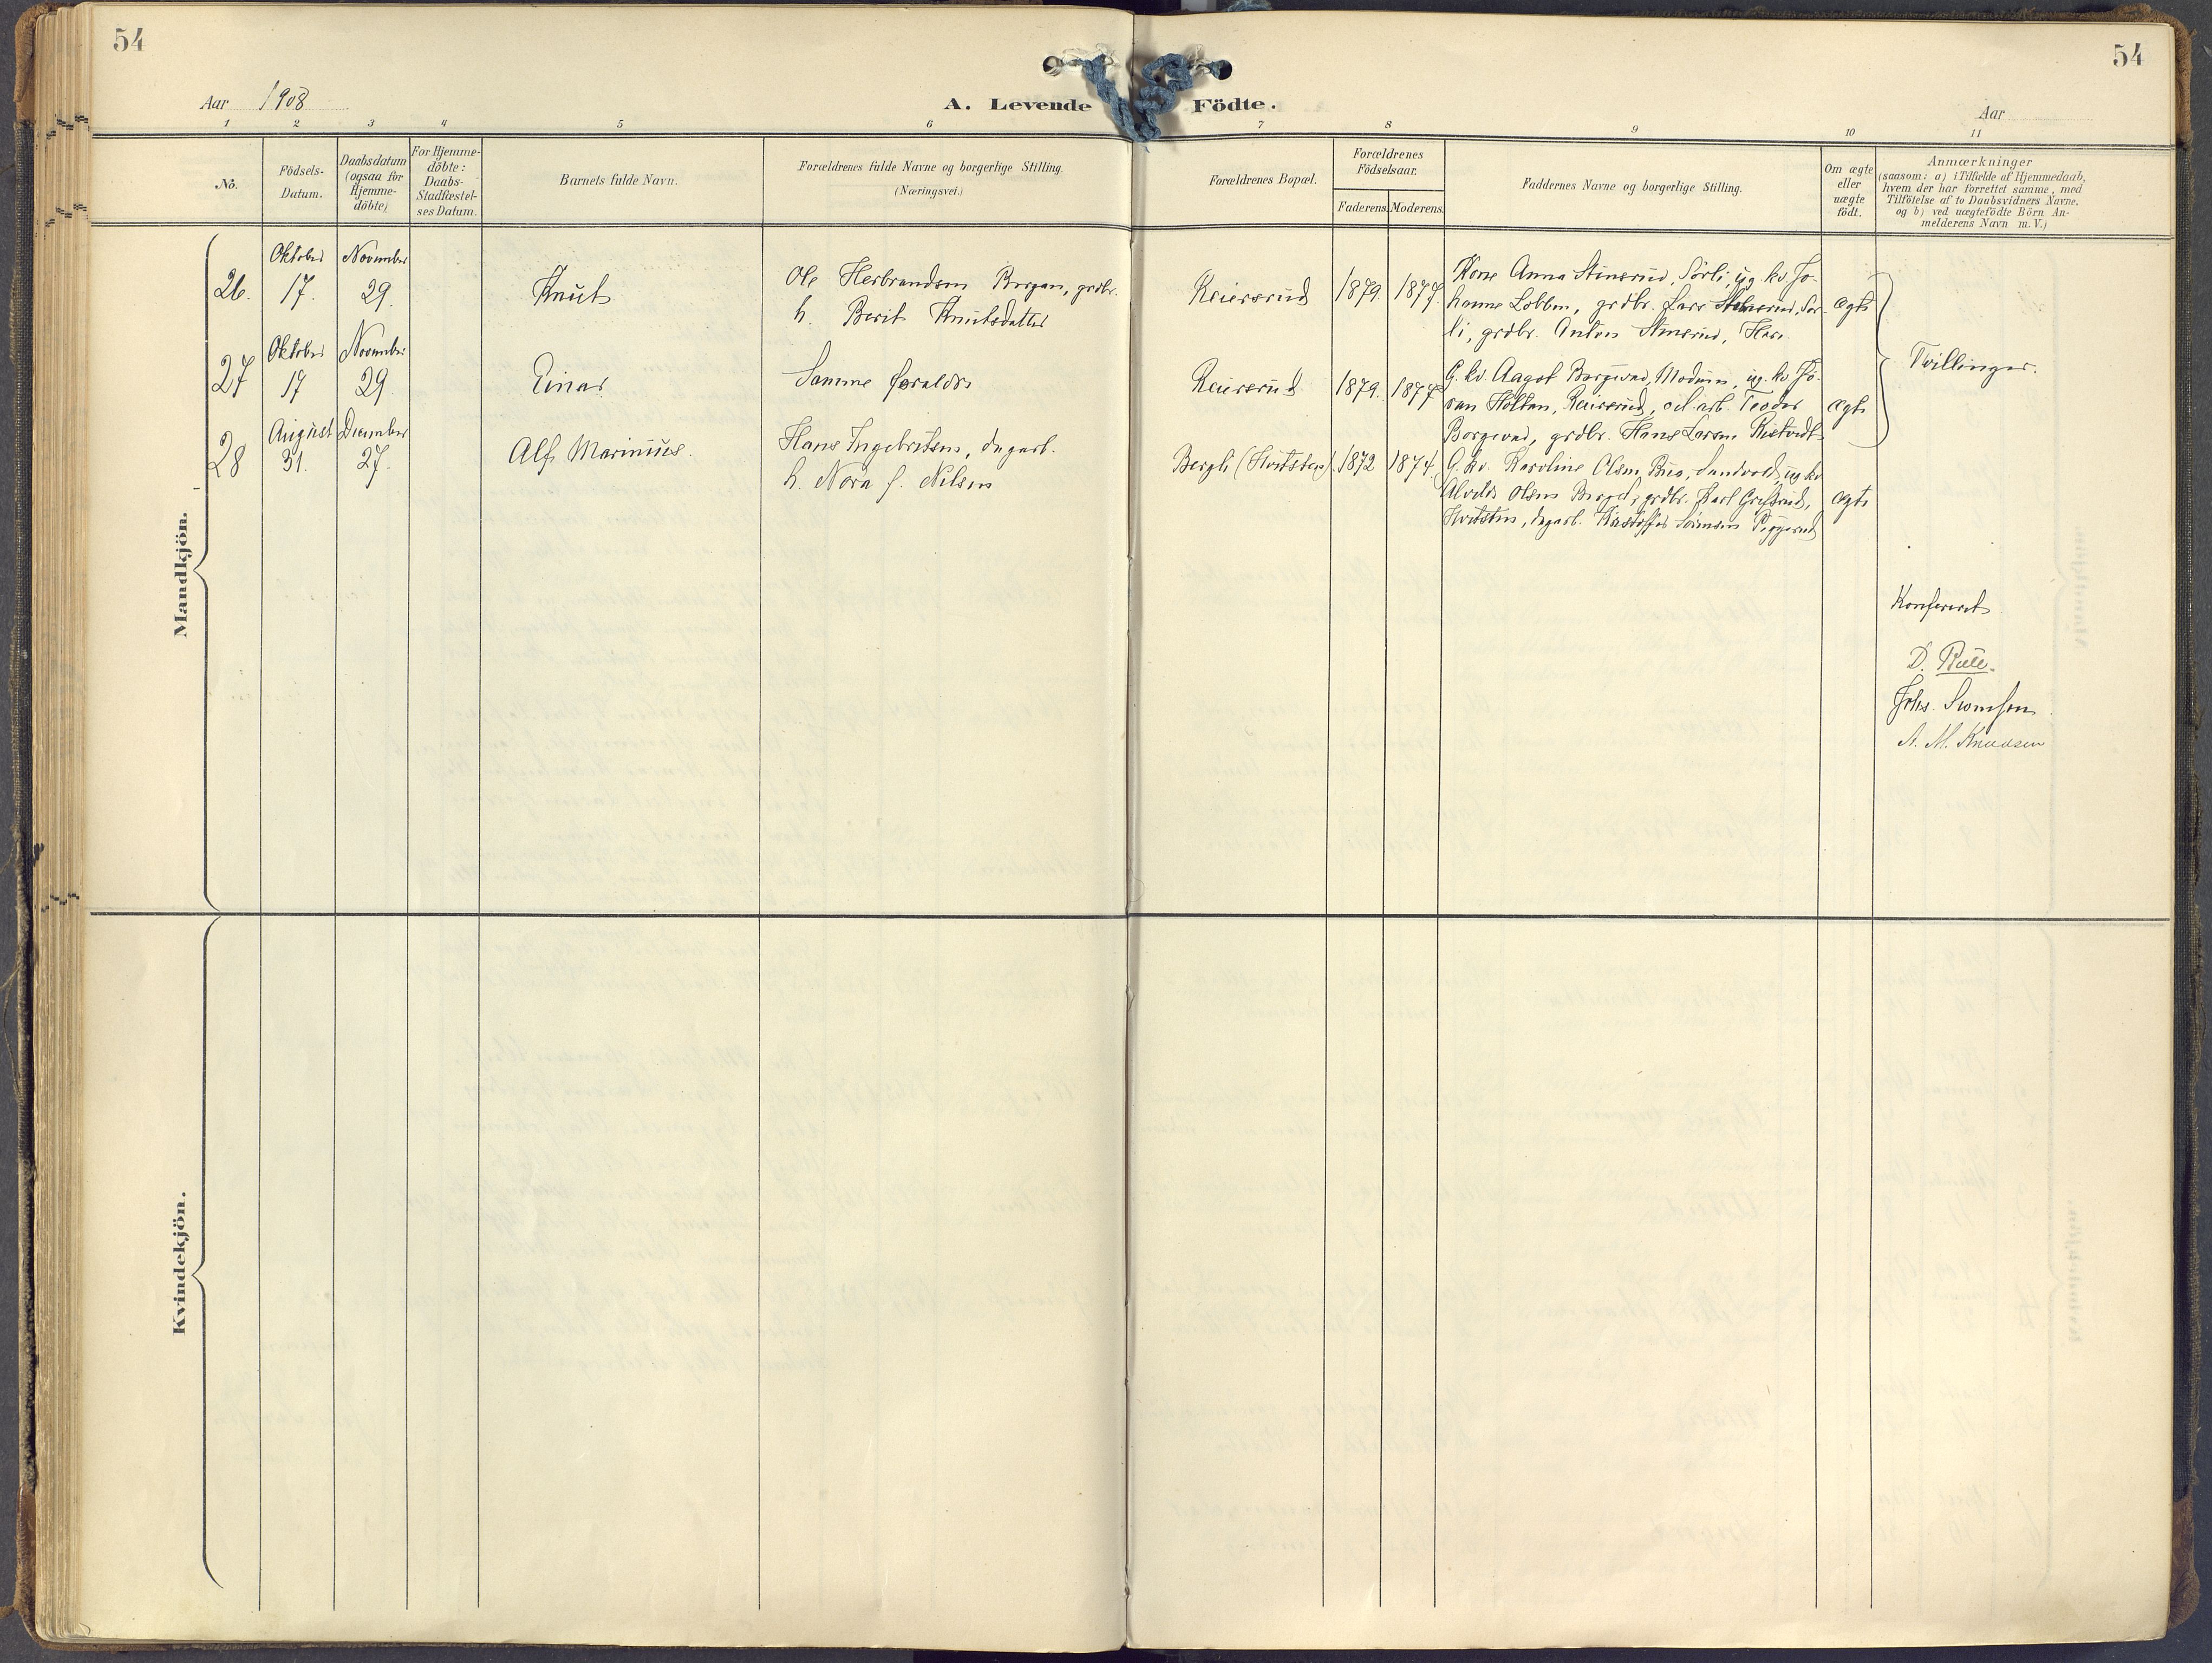 54
54
Aar 1908
A. Levende Födte.
Aar
1 2 3 4 5 6 7 8 9 10 11
No.
Födsels-
Datum.
Daabsdatum
(ogsaa for
Hjemme-
döbte)
For Hjemme-
döbte:
Daabs-
Stadfæstel-
ses Datum.
Barnets fulde Navn.
Forældrenes fulde Navne og borgerlige Stilling.
(Næringsvei.)
Forældrenes Bopæl.
Forældrenes
Födselsaar.
Faderens. Moderens.
Faddernes Navne og borgerlige Stilling.
Om ægte
eller
uægte
födt.
Anmærkninger
(saasom: a) i Tilfælde af Hjemmedaab,
hvem der har forrettet samme, med
Tilföielse af to Daabsvidners Navne,
og b) ved uægtefödte Börn An-
melderens Navn m. V.)
Mandkjön.
Oktober November
26. 17. 29. Knut
Ole Herbrandsen Bergan, grdbr.
h. Berit Knutsdatter
Reiersrud 1879. 1877.
Kone Anna Stensrud, Sörli, ug. kv. Jo-
hanne Lobben, grdbr. Lars Stensrud, Sör-
li, grdbr. Anton Stensrud,
ægte
Oktober November
27 17 29. Einar
Samme foreldre
Reiersrud 1879. 1877
G. kv. Aagot Borgerud, Modum, ug. kv. Jö-
ran Holtan, Reiersrud, arb. Teodor
Borgerud, grdbr. Hans Larsen
ægte
Tvillinger.
August December
28 31. 27. Alf Marinius.
Hans Ingebretsen, dagarb.
h. Nora f. Nilsen
Bergli (Hvitsten) 1872 1874
G. kv. Karoline Olsen Sundvold, ug kv
Alvilde Olsen grdbr. Karl
Hvitsten, dagarb. Kristoffer Sörensen
ægte
Konfereret
D.
Johs.
A. M. Knudsen
Kvindekjön.